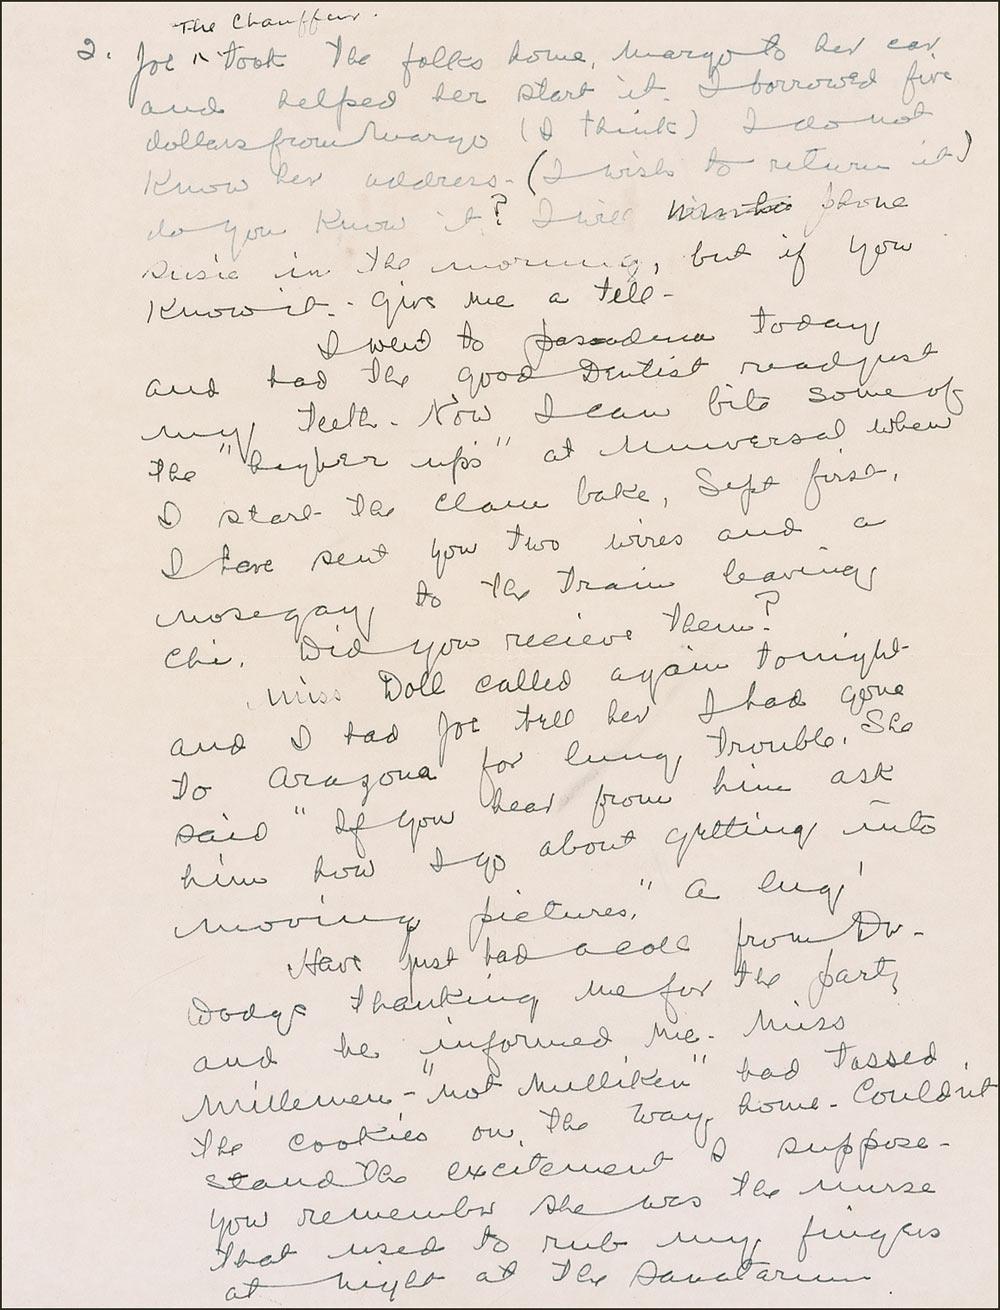 The Chauffeur.
2. Joe ^ took the folks home, Margo to her car
and helped her start it. I borrowed five
dollars from Margo (I think) I do not
know her address - (I wish to return it)
do you know it? I will phone
Susie in the morning, but if you
know it - give me a tell -
I went to Pasadena today
and had the good Dentist readjust
my teeth - Now I can bite some of
the "hayher ups" at Universal when
I start the clam bake, Sept first,
I have sent you two wires and a
nosegay to the train leaving
Chi. Did you recieve them?
Miss Doll called again tonight
and I had Joe tell her I had gone
to Arazona for lung trouble. She
said "If you hear from him ask
him how I go about getting into
moving pictures." A lug!
Have just had a call from Dr.
Dodge thanking me for the party
and he informed me - Miss
Millemen - "not Milliken" had tossed
the cookies on the way home - Couldn't
stand the excitement I suppose -
You remember she was the nurse
that used to rub my fingers
at night at the Sanatarium